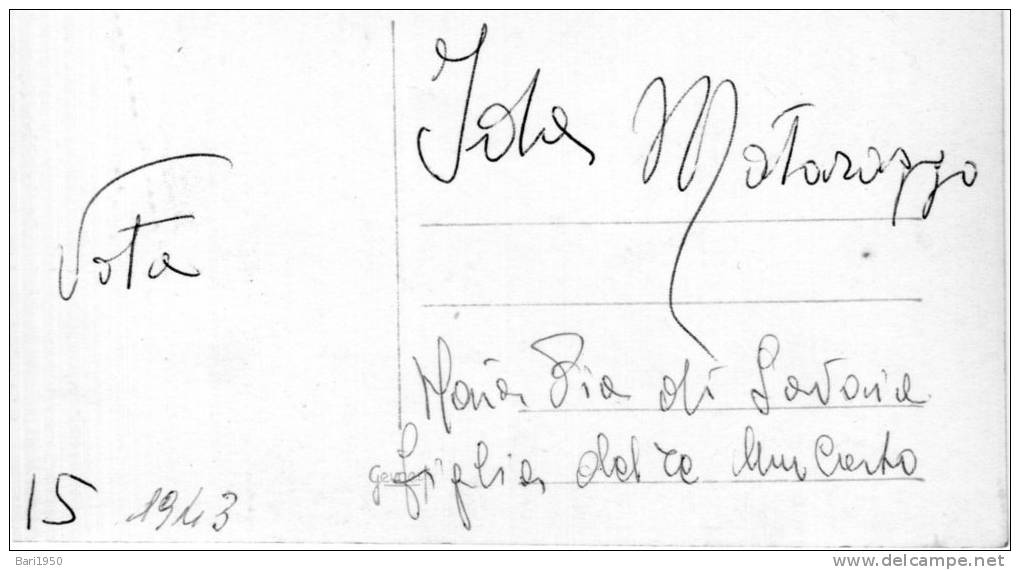 Vota
15 1943
Iole Matarazzo
Maria Pia di Savoia
figlia del re Umberto
Bari1950
www.delcampe.net